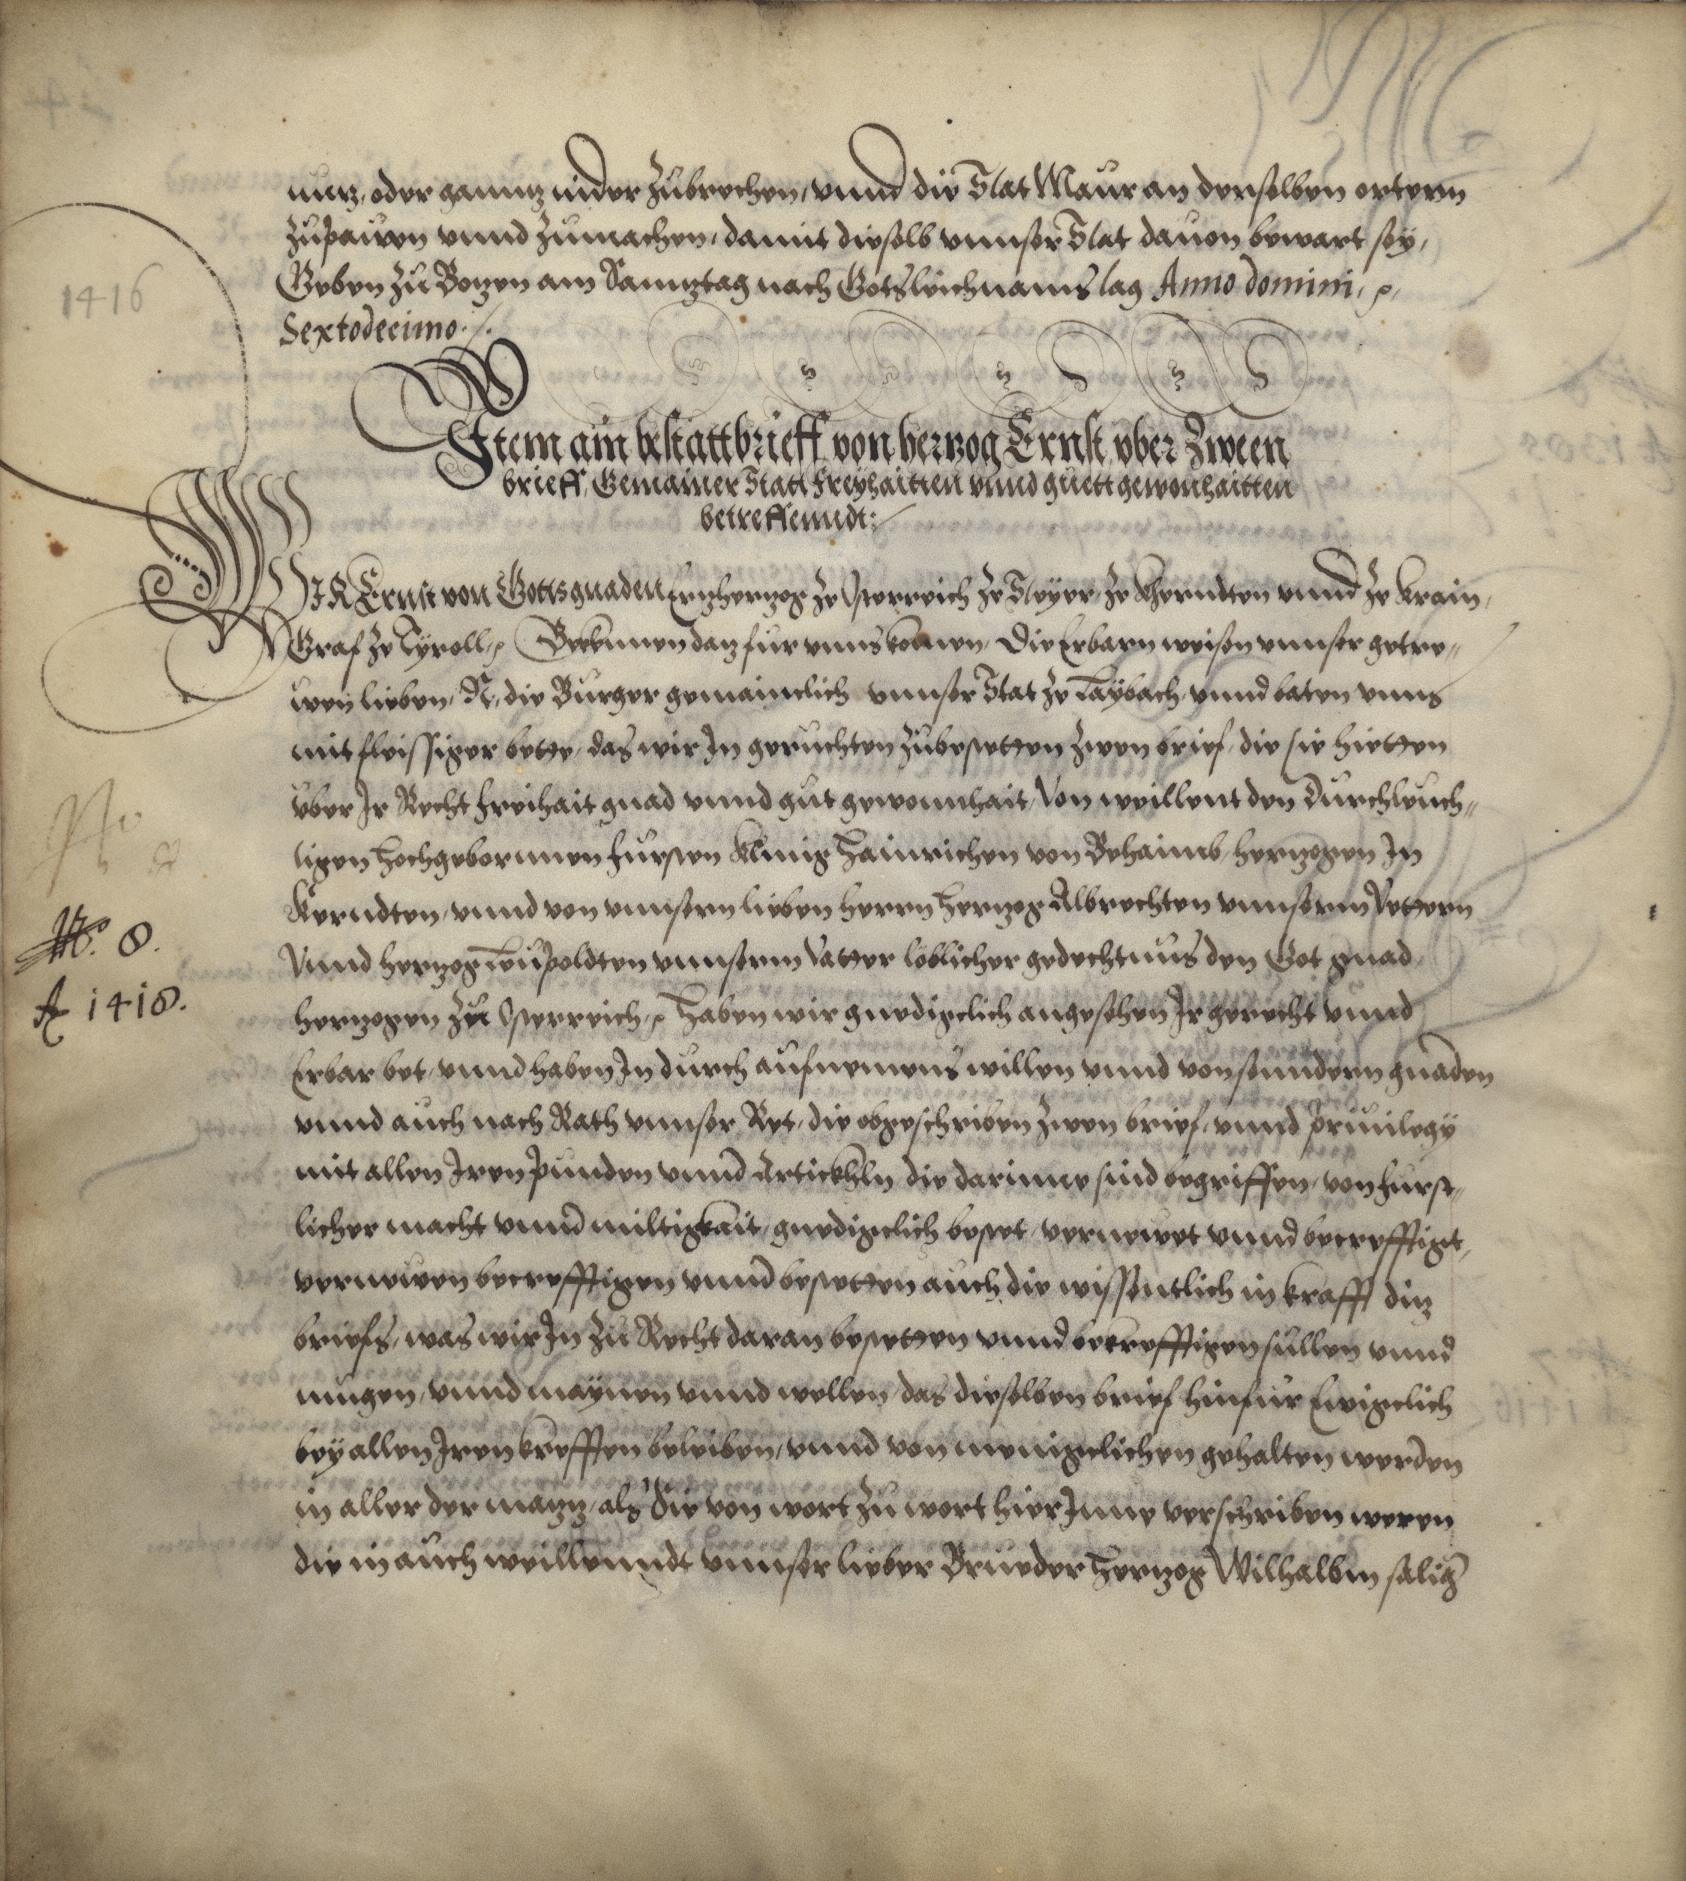 nucz, oderganntz nider zubrechen, vnnd die Stat Maur an denselben ortern
zupawen vnnd zumachen, damit dieselb vnnser Stat dauon bewart sey,
Geben zu Botzen am Sampztag nach Gotsleichnams tag Anno domini, ⁊c,
Sextodecimo ./.
1416
Item ain bestattbrieff von hertzog Ernst vber Zween
brieff, Gemainer Statt freyhaitten vnnd guett gewonhaitten
betreffenndt:
WIR Ernst von Gottsgnaden Ertzhertzog ze Osterreich ze Steyer, ze Kherndten vnnd ze Krain,
Graf ze Tyroll, ⁊c Bekennen daz fur vnns komen, Die Erbarn weisen vnnser getre=
wen lieben, N, die Burger gemainclich vnnser Stat ze Laybach, vnnd baten vnns
mit fleissiger bette, das wir In geruchten zubestetten zwen brief, die sie hietten
vber Ir Recht freihait gnad vnnd gut gewonnhait, Von weillent den durchleuch=
tigen hochgebornnen fursten Kunig Hainrichen von Behaimb, hertzogen In
Kerndten, vnnd von vnnsern lieben herrn Hertzog Albrechten vnnserm Vettern
Vnnd hertzog Leupoldten vnnserm Vatter loblicher gedechtnus den Got gnad
hertzogen zu Osterreich, ⁊c haben wir gnedigclich angesehen Ir gerecht vnnd
Erbar bet, vnnd haben In durch aufnemens willen vnnd von sunndern gnaden
vnnd auch nach Rath vnnser Ret, die obgeschriben zwen brief, vnnd priuilegy
mit allen Iren punden vnnd Artickhln die darinne sind begriffen, von furst=
licher macht vnnd miltigkait, gnedigclich bestet, vernewet vnnd becrefftigt,
vernewen becrefftigen vnnd bestetten auch die wissentlich in krafft ditz
briefs, was wir In zu Recht daran bestetten vnnd bekrefftigen sullen vnnd
mugen, vnnd maynen vnnd wellen, das dieselben brief hinfur Ewigclich
bey allen Iren krefften beleiben, vnnd von menigclichen gehalten werden
in aller der mazz, als die von wort zu wort hier Inne verschriben weren
die in auch weillenndt vnnser lieber Brueder Hertzog Wilhalbm salig
No. 8.
A 1418.